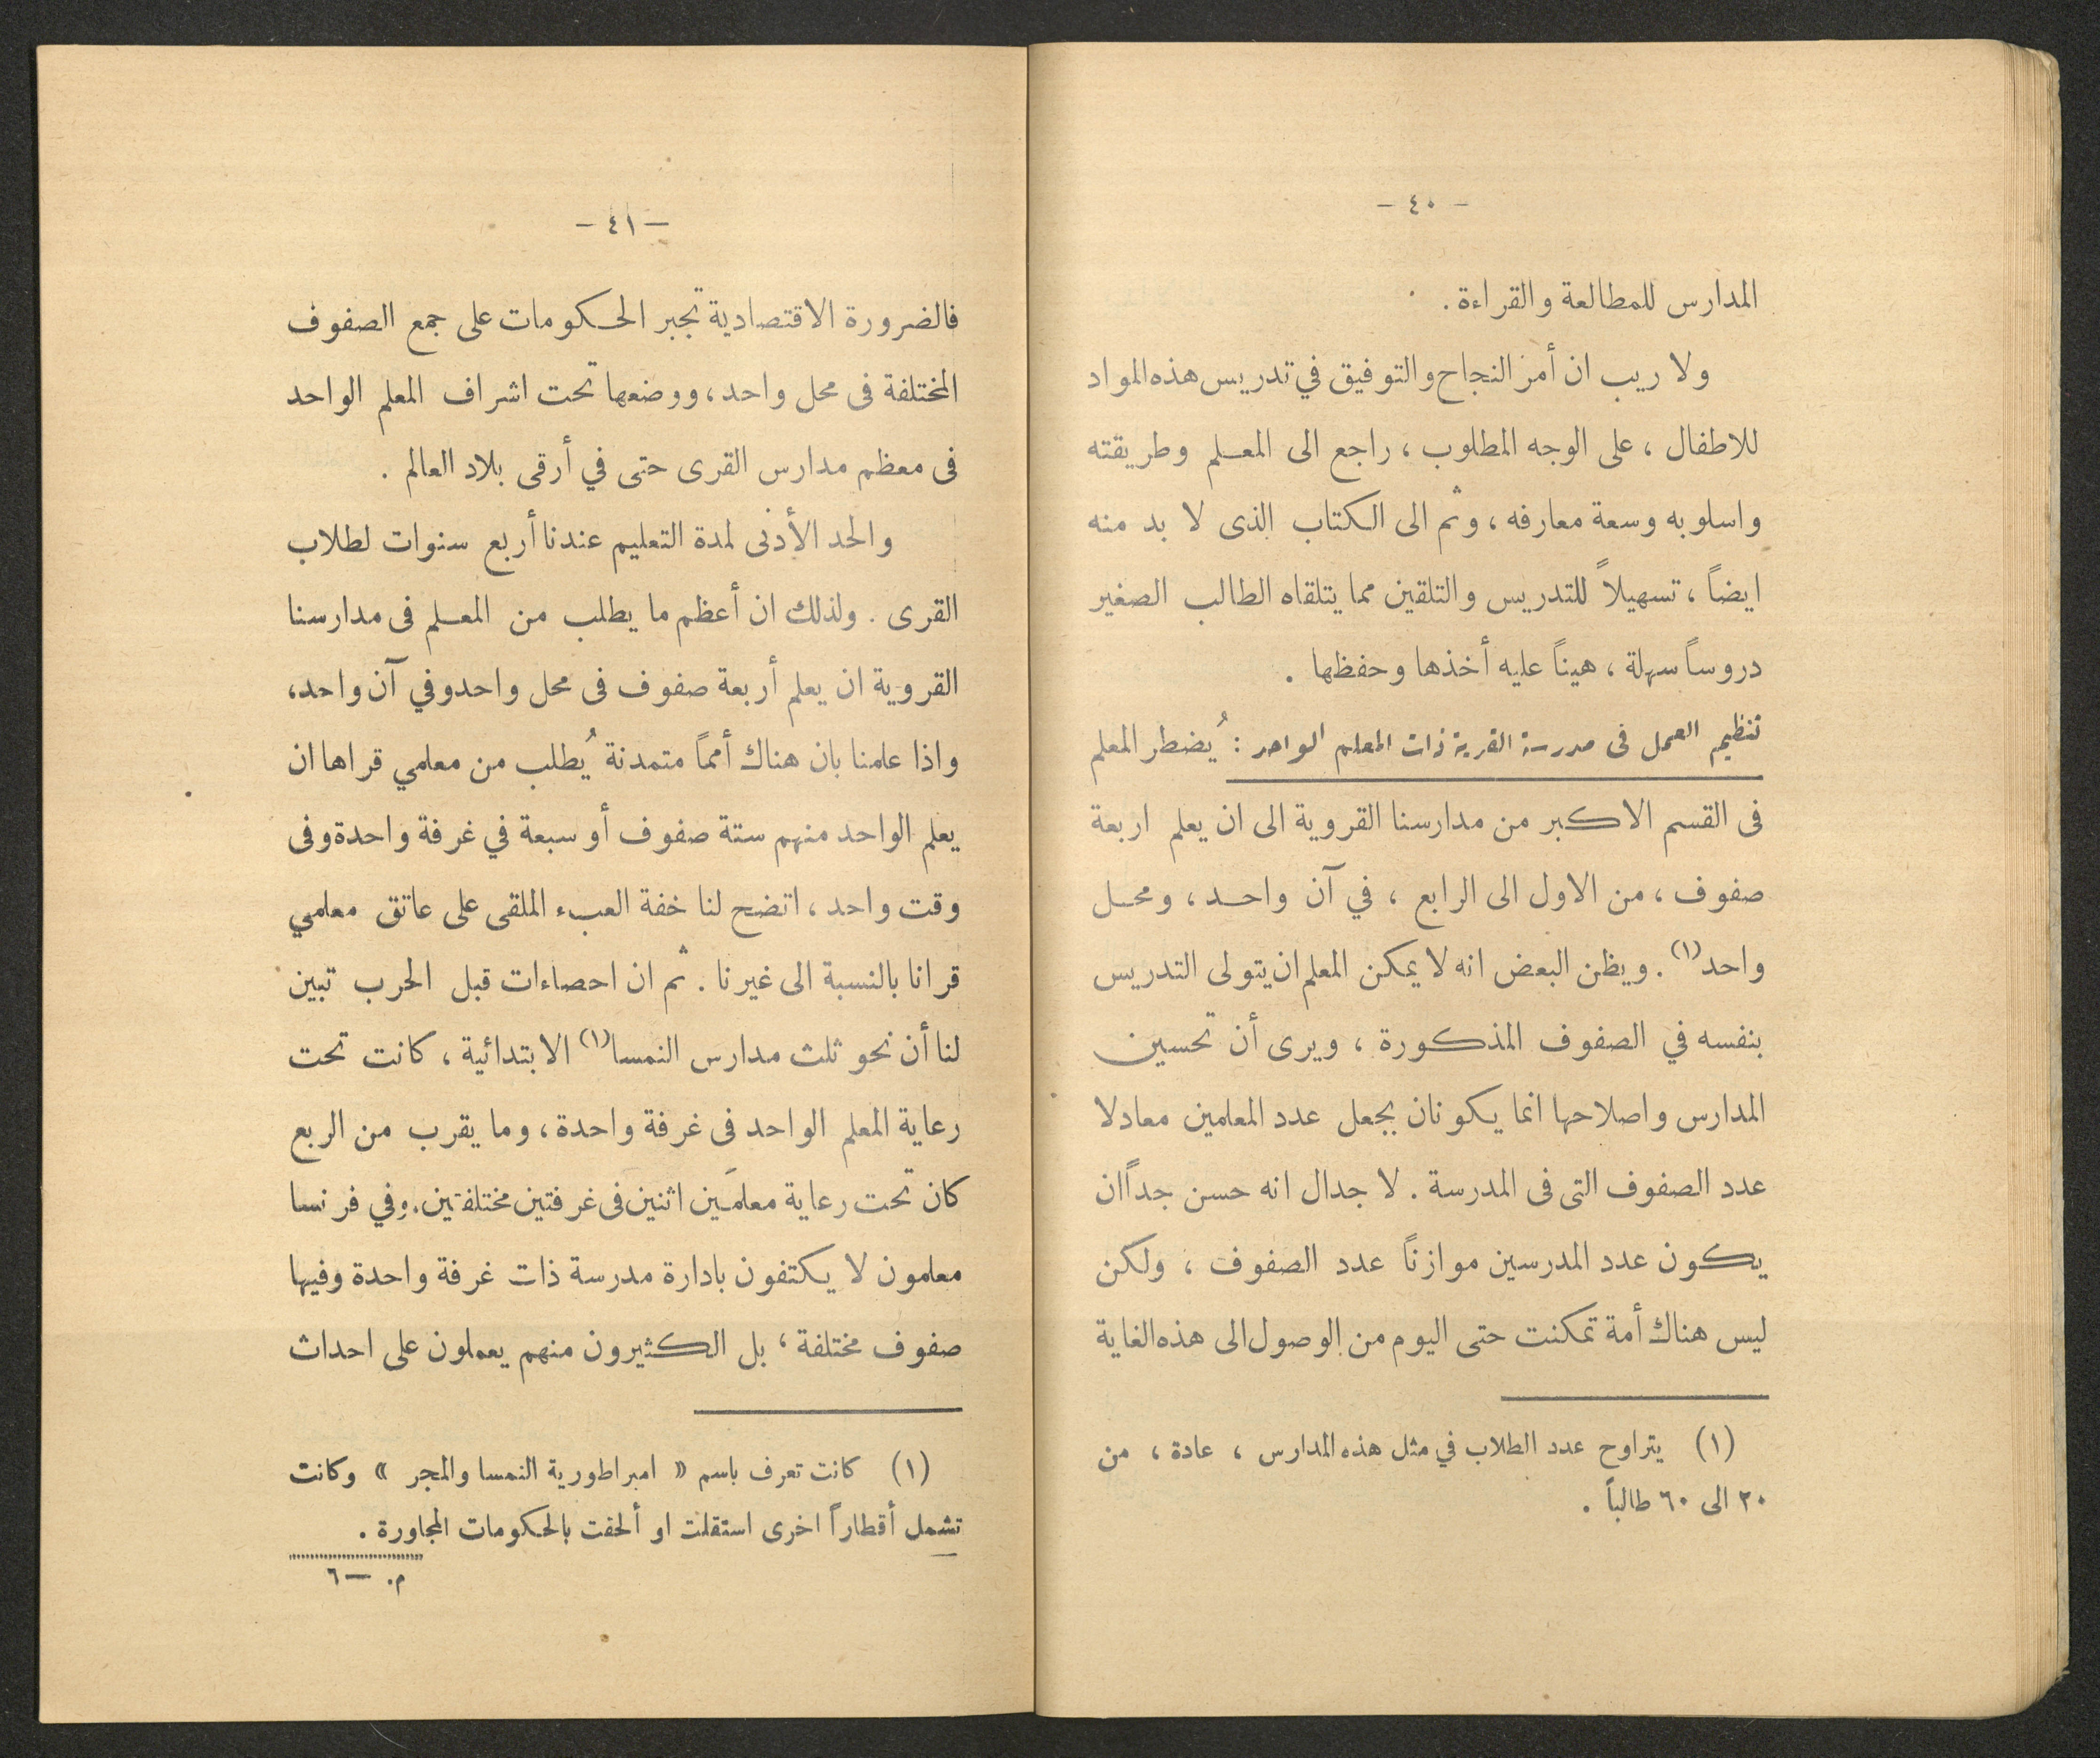 - ٤٠ -
المدارس للمطالعة والقراءة.
ولا ريب ان أمر النجاح والتوفيق في تدريس هذه المواد
للاطفال ، على الوجه المطلوب ، راجع الى المعلم وطريقته
واسلوبه وسعة معارفه ، وثم الى الكتاب الذى لا بد منه
ايضاً ، تسهيلاً للتدريس والتلقين مما يتلقاه الطالب الصغير
دروساً سهلة ، هيناً عليه أخذها وحفظها .
تنظيم العمل فى مدرسة القرية ذات المعلم الواحد : يُضطر المعلم
فى القسم الاكبر من مدارسنا القروية الى ان يعلم اربعة
صفوف ، من الاول الى الرابع ، في آن واحد ، ومحل
واحد(١) . ويظن البعض انه لا يمكن المعلم ان يتولى التدريس
بنفسه في الصفوف المذكورة ، ويرى أن تحسين
المدارس واصلاحها انما يكونان بجعل عدد المعلمين معادلا
عدد الصفوف التى فى المدرسة . لا جدال انه حسن جداً ان
يكون عدد المدرسين موازناً عدد الصفوف ، ولكن
ليس هناك أمة تمكنت حتى اليوم من الوصول الى هذه الغاية
(١) يتراوح عدد الطلاب في مثل هذه المدارس ، عادة ، من
٢٠ الى ٦٠ طالباً .
- ٤١ -
فالضرورة الاقتصادية تجبر الحكومات على جمع الصفوف
المختلفة فى محل واحد ، ووضعها تحت اشراف المعلم الواحد
فى معظم مدارس القرى حتى في أرقى بلاد العالم .
والحد الأدنى لمدة التعليم عندنا أربع سنوات لطلاب
القرى . ولذلك ان أعظم ما يطلب من المعلم فى مدارسنا
القروية ان يعلم أربعة صفوف فى محل واحد وفي آن واحد،
واذا علمنا بان هناك أمماً متمدنة يُطلب من معلمي قراها ان
يعلم الواحد منهم ستة صفوف أو سبعة في غرفة واحدة وفى
وقت واحد ، اتضح لنا خفة العبء الملقى على عاتق معلمي
قرانا بالنسبة الى غيرنا . ثم ان احصاءات قبل الحرب تبين
لنا أن نحو ثلث مدارس النمسا(١) الابتدائية ، كانت تحت
رعاية المعلم الواحد فى غرفة واحدة ، وما يقرب من الربع
كان تحت رعاية معلمَين اثنين فى غرفتين مختلفتين. وفي فرنسا
معلمون لا يكتفون بادارة مدرسة ذات غرفة واحدة وفيها
صفوف مختلفة ، بل الكثيرون منهم يعملون على احداث
(١) كانت تعرف باسم « امبراطورية النمسا والمجر » وكانت
تشمل أقطاراً اخرى استقلت او ألحقت بالحكومات المجاورة .
م. — ٦